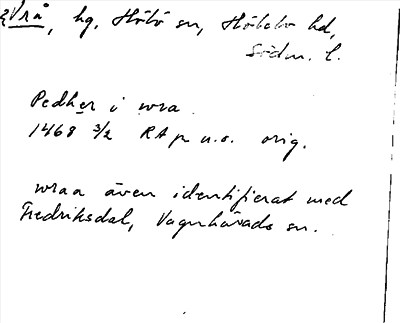 Vrå, hg. Hölö sn, Hölebo hd,
Södm. l.
Pedher i wra
1468 3/2 RAp u.s. orig.
wraa även identifierat med
Fredriksdal, Vagnhärads sn.